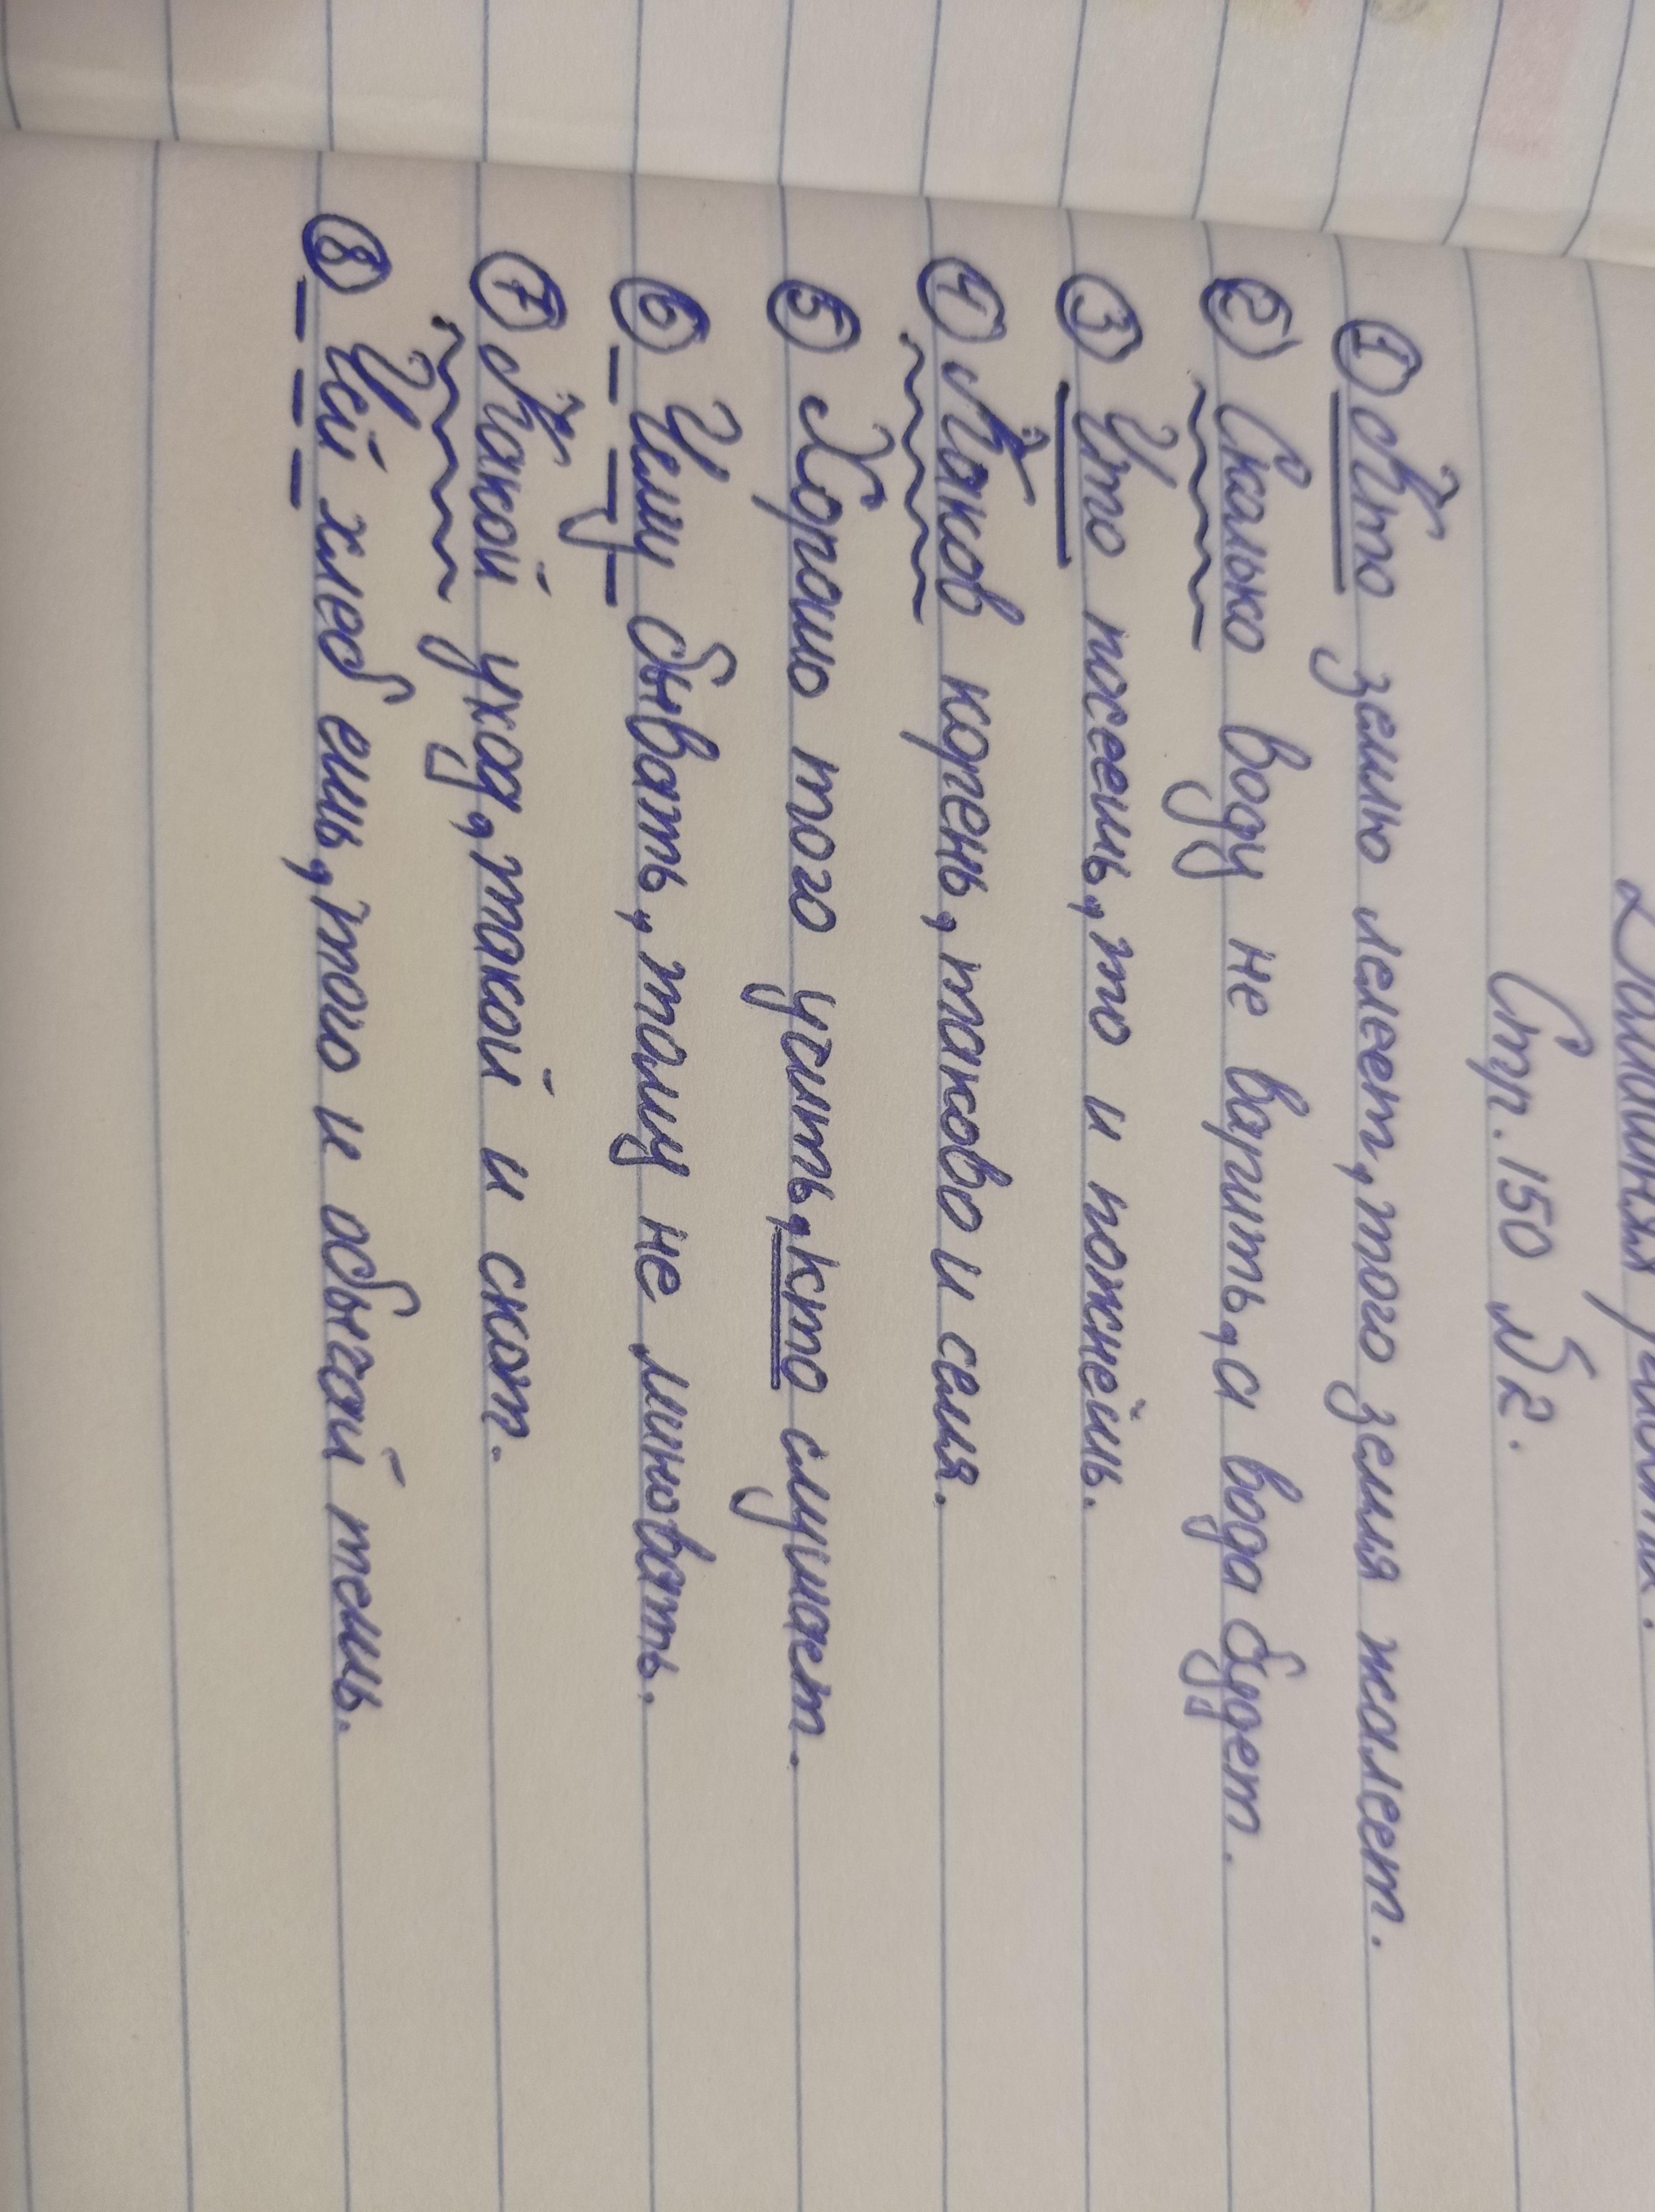 Домашняя работа.
Стр. 150 №2.
① Кто землю лелеет, того земля жалеет.
② Сколько воду не варить, а вода будет.
③ Что посеешь, то и пожнёшь.
④ Каков корень, таково и семя.
⑤ Хорошо того учить, кто слушает.
⑥ Чему бывать, тому не миновать.
⑦ Какой уход, такой и скот.
⑧ Чей хлеб ешь, того и обычай тешь.